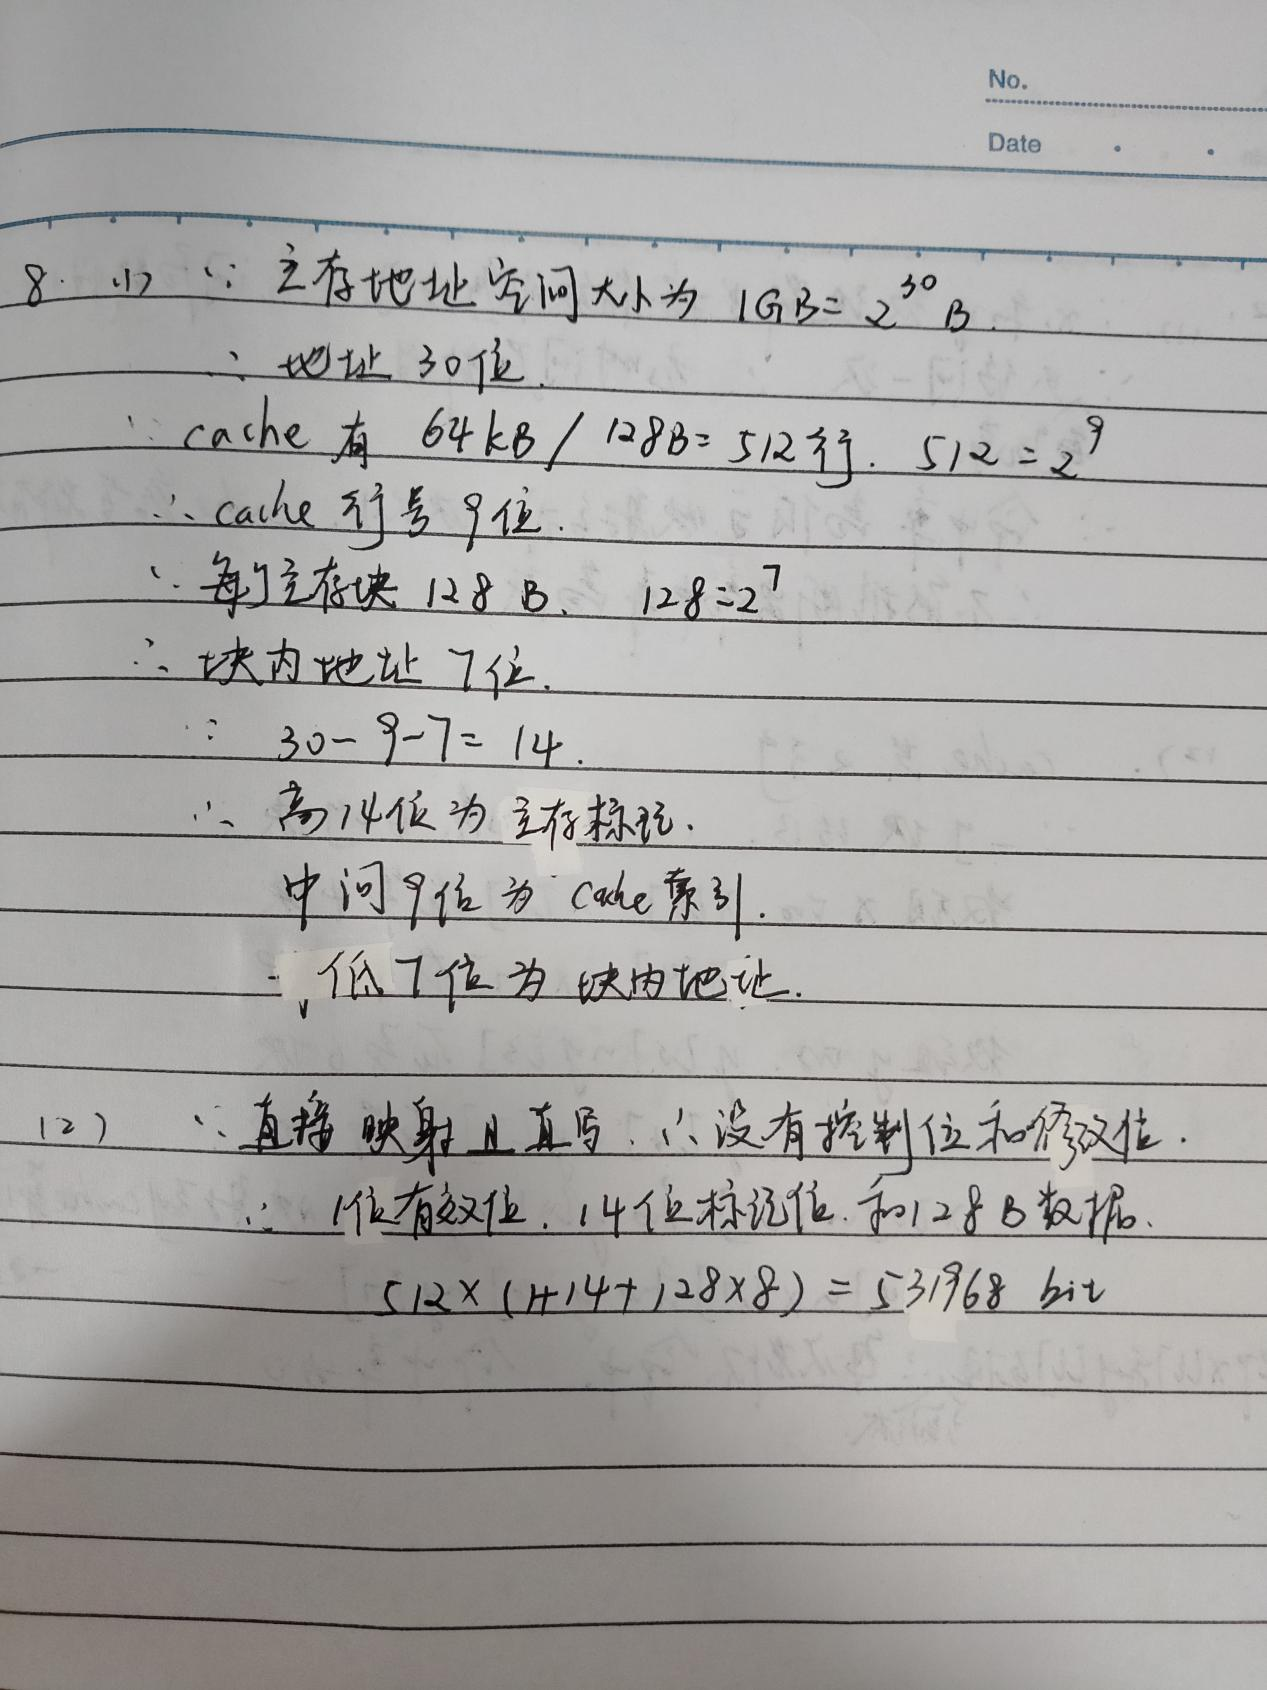 No.
Date
8. (1) ∵ 主存地址空间大小为 1GB = 2^30 B.
∴ 地址 30位.
∵ cache 有 64kB / 128B = 512行. 512 = 2^9
∴ cache 行号 9位.
∵ 每个主存块 128 B. 128 = 2^7
∴ 块内地址 7位.
∵ 30 - 9 - 7 = 14.
∴ 高14位为主存标记.
中间9位为 cache 索引.
低7位为块内地址.
(2) ∵ 直接映射且直写. ∴ 没有控制位和修改位.
∴ 1位有效位. 14位标记位. 和128B数据.
512 × (1+14+128×8) = 531968 bit